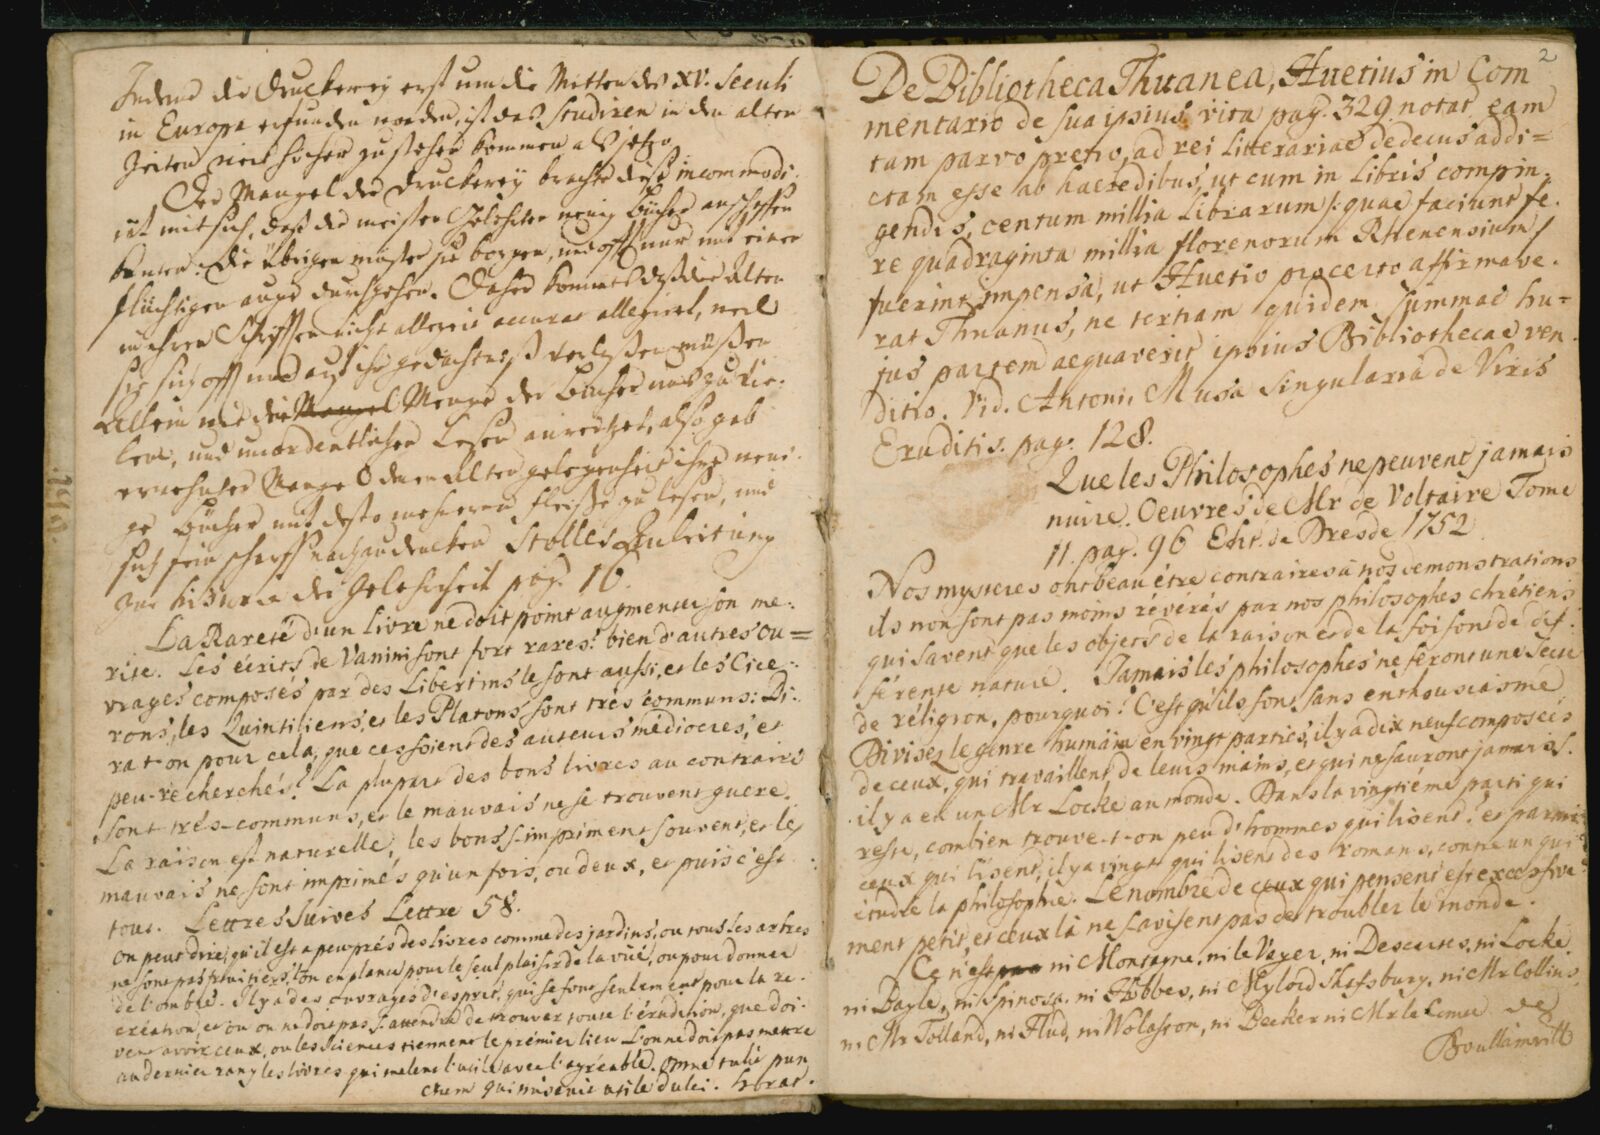 Indem die Druckerey erst um die Mitten des XV. Seculi
in Europa erfunden worden, ist das Studiren in den alten
Zeiten viel höher zu stehen kommen als jetzo.
Der Mangel der Druckerey brachte diese incommodi-
tät mit sich, daß die meisten Gelehrten wenig Bücher anschaffen
konten. Die übrigen musten sie borgen, und offt nur mit einem
flüchtigen auge durchgehen. Daher kommt daß die Alten
in ihren Schrifften nicht allezeit accurat allegirt, weil
sie sich offt nur auf ihr gedächtniß verlaßen müßen
Allein wie die Mangel Menge der Bücher uns zu vie-
lem, und unordentlichen Lesen anreitzet, also gab
ermelter Mangel den Alten gelegenheit ihre weni-
ge Bücher mit desto mehrerem fleiße zu lesen, und
sich fein scharff nachzudencken Stolles Anleitung
zur historie der Gelehrheit pag. 16.
La Rareté d'un livre ne doit point augmenter son me-
rite. Les écrits de Vanini sont fort rares: bien d'autres ou=
vrages composés par des Libertins le sont aussi, et les Cice-
rons, les Quintiliens, et les Platons sont trés communs: Di-
ra t-on pour cela, que ces soient des auteurs médiocres, et
peu-recherchés? La plupart des bons livres au contraire
sont trés-communs, et le mauvais ne se trouvent guere.
La raison est naturelle, les bons s'impriment souvent, et les
mauvais ne sont imprimés qu'un fois, ou deux, et puis c'est
tout. Lettres Juives Lettre 58.
on peut dire, qu'il est a peu prés des livres comme des jardins, ou tous les arbres
ne sont pas fruitiers, l'on en plante pour le seul plaisir de la vüe, ou pour donner
de l'ombre. Il y a des ouvrages d'esprit, qui se font seulement pour la re-
création, et ou on ne doit pas s'attendre de trouver toute l'érudition, que doi-
vent avoir ceux, ou les sciences tiennent le prémier lieu L'on ne doit pas mettre
au dernier rang les livres qui melent l'utile avec l'agréable. Omne tulit pun
ctum qui miscuit utile dulci. Horat.
2
De Bibliotheca Thuanea, Huetius in Com
mentario de sua ipsius vita pag. 329. notat eam
tam parvo pretio, ad rei litterariae dedecus addi=
ctam esse ab haeredibus, ut cum in libris compin-
gendis, centum millia Librarum /: quae faciunt fe-
re quadraginta millia florenorum Rhenensium /
fuerint impensa, ut Huetio pro certo affirmave-
rat Thuanus, ne tertiam quidem summae hu=
jus partem aequaverit ipsius Bibliothecae ven-
ditio. Vid. Antonii Musa Singularia de Viris
Eruditis. pag. 128.
Que les Philosophes ne peuvent jamais
nuire. Oeuvres de Mr de Voltaire Tome
11. pag. 96 Edit. de Dresde 1752
Nos mysteres ont beau étre contraires à nos démonstrations
ils non sont pas moins révérés par nos philosophes chrétiens
qui savent que les objets de la raison et de la foi sont de dif-
férente nature. Jamais les philosophes ne feront une Secte
de réligion, pourquoi? C'est qu'ils sont sans enthousiasme
Divisez le genre humain en vingt parties, il y a dix neuf composées
de ceux, qui travaillent de leurs mains, et qui ne sauront jamais s'-
il y a eu un Mr Locke au monde. Dans la vingtiéme parti qui
reste, combien trouve-t-on peu d'hommes qui lisent! et parmi
ceux qui lisent, il y a vingt qui lisent des romans, contre un qui
étudie la philosophie. Le nombre de ceux qui pensent est excessive-
ment petit, et ceux là ne s'avisent pas de troubler le monde.
Ce n'est ni Montagne, ni le Vayer, ni Descartes, ni Locke
ni Bayle, ni Spinosa, ni Hobbes, ni Mylord Shafsbury, ni Mr Collins
ni Mr Tolland, ni Flud, ni Wolaston, ni Becker ni Mr le Comte de
Boullainvill